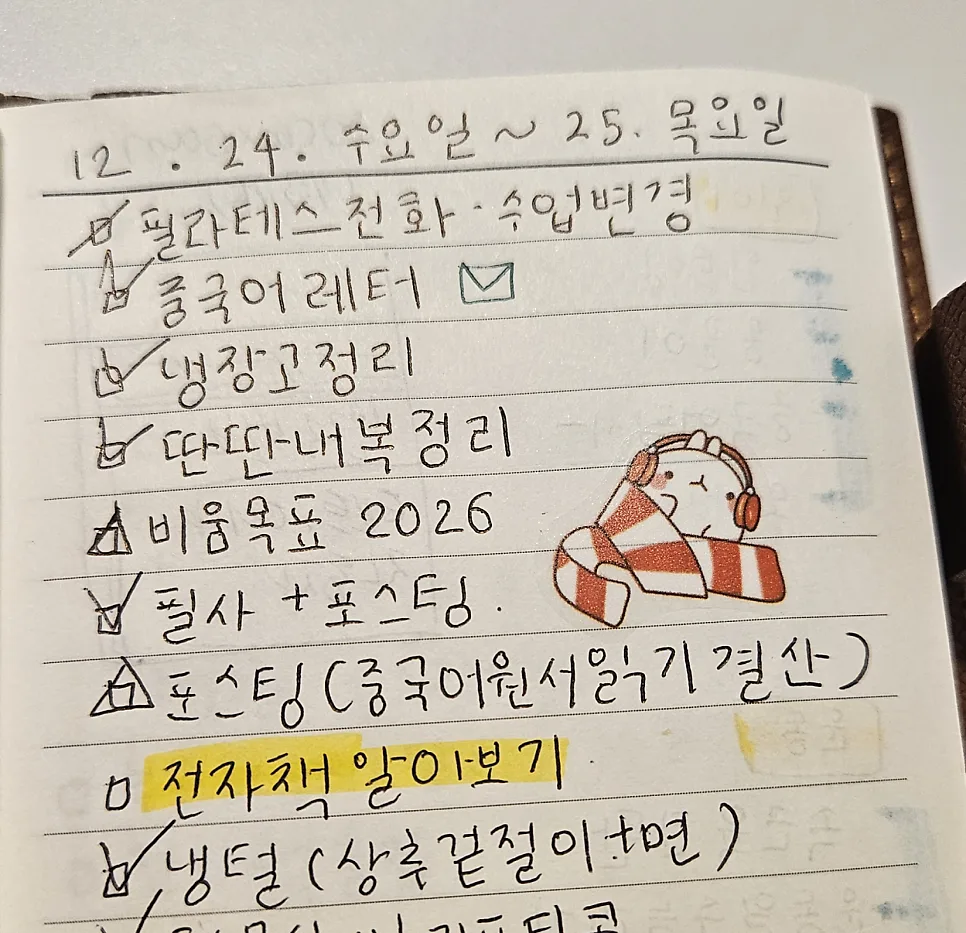 12 . 24. 수요일 ~ 25. 목요일
필라테스전화 · 수업변경
중국어레터
냉장고정리
딴딴내복정리
비움목표 2026
필사 + 포스팅.
포스팅(중국어원서읽기 결산)
전자책 알아보기
냉털 (상추겉절이+면)